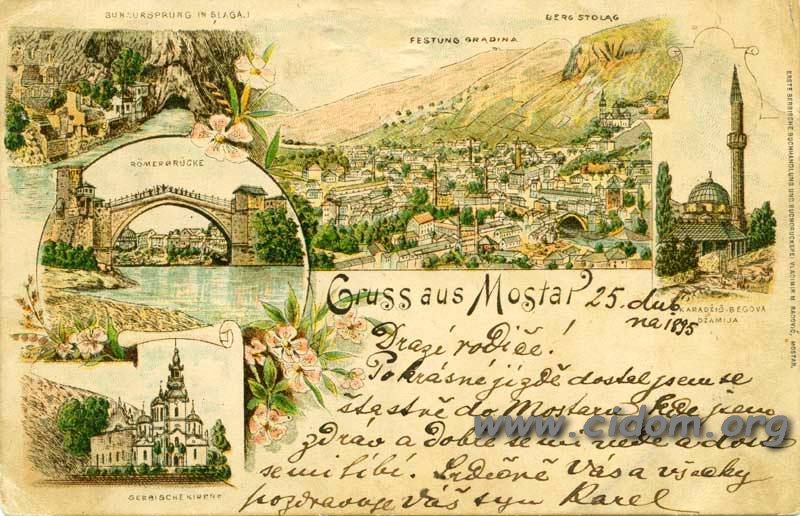 BUNAURSPRUNG IN BLAGAJ
FESTUNG GRADINA
BERG STOLAG
RÖMERBRÜCKE
Gruss aus Mostar
KARADŽIĆ-BEGOVA
DŽAMIJA
SERBISCHE KIRCHE
ERSTE SERBISCHE BUCHHANDLUNG UND BUCHDRUCKEREI VLADIMIR M. RADOVIĆ, MOSTAR.
25. dub
na 1895
Drazí rodiče!
Po krásné jízdě dostal jsem se
šťastně do Mostaru jsem
zdráv a dobře se mi vede a
se mi líbí. Srdečně Vás a všecky
pozdravuje Váš syn Karel
www.cidom.org